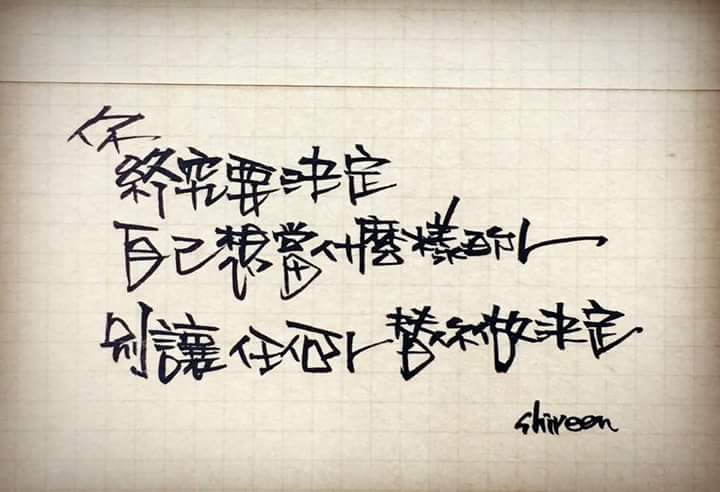 你
終究要決定
自己想當什麼樣的人
別讓任何人替你做決定
shireen